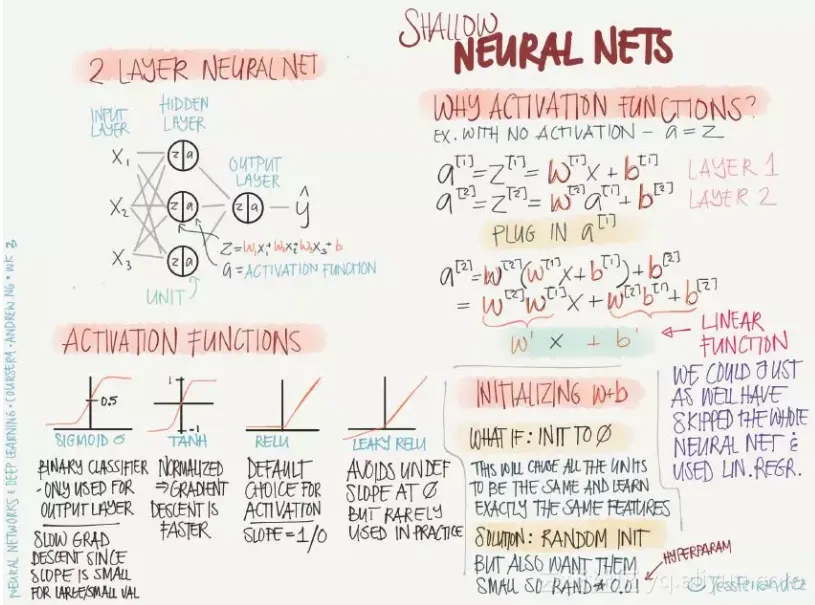 SHALLOW
NEURAL NETS
2 LAYER NEURAL NET
INPUT
LAYER
HIDDEN
LAYER
OUTPUT
LAYER
X₁
X₂
X₃
z a
z a
z a
z a
ŷ
Z=W₁X₁+W₂X₂+W₃X₃+b
a=ACTIVATION FUNCTION
UNIT
ACTIVATION FUNCTIONS
0.5
SIGMOID σ
BINARY CLASSIFIER
- ONLY USED FOR
OUTPUT LAYER
SLOW GRAD
DESCENT SINCE
SLOPE IS SMALL
FOR LARGE/SMALL VAL
1
-1
TANH
NORMALIZED
⇒ GRADIENT
DESCENT IS
FASTER
RELU
DEFAULT
CHOICE FOR
ACTIVATION
SLOPE = 1/0
LEAKY RELU
AVOIDS UNDEF
SLOPE AT 0
BUT RARELY
USED IN PRACTICE
WHY ACTIVATION FUNCTIONS?
EX. WITH NO ACTIVATION - a = z
a[1]=z[1]=W[1]X+b[1] LAYER 1
a[2]=z[2]=W[2]a[1]+b[2] LAYER 2
PLUG IN a[1]
a[2]=W[2](W[1]X+b[1])+b[2]
= W[2]W[1]X+W[2]b[1]+b[2]
W' X + b'
LINEAR
FUNCTION
WE COULD JUST
AS WELL HAVE
SKIPPED THE WHOLE
NEURAL NET &
USED LIN. REGR.
INITIALIZING W+b
WHAT IF: INIT TO 0
THIS WILL CAUSE ALL THE UNITS
TO BE THE SAME AND LEARN
EXACTLY THE SAME FEATURES
SOLUTION: RANDOM INIT
BUT ALSO WANT THEM
SMALL SO RAND * 0.01
HYPERPARAM
NEURAL NETWORKS & DEEP LEARNING · COURSERA · ANDREW NG · WK 3